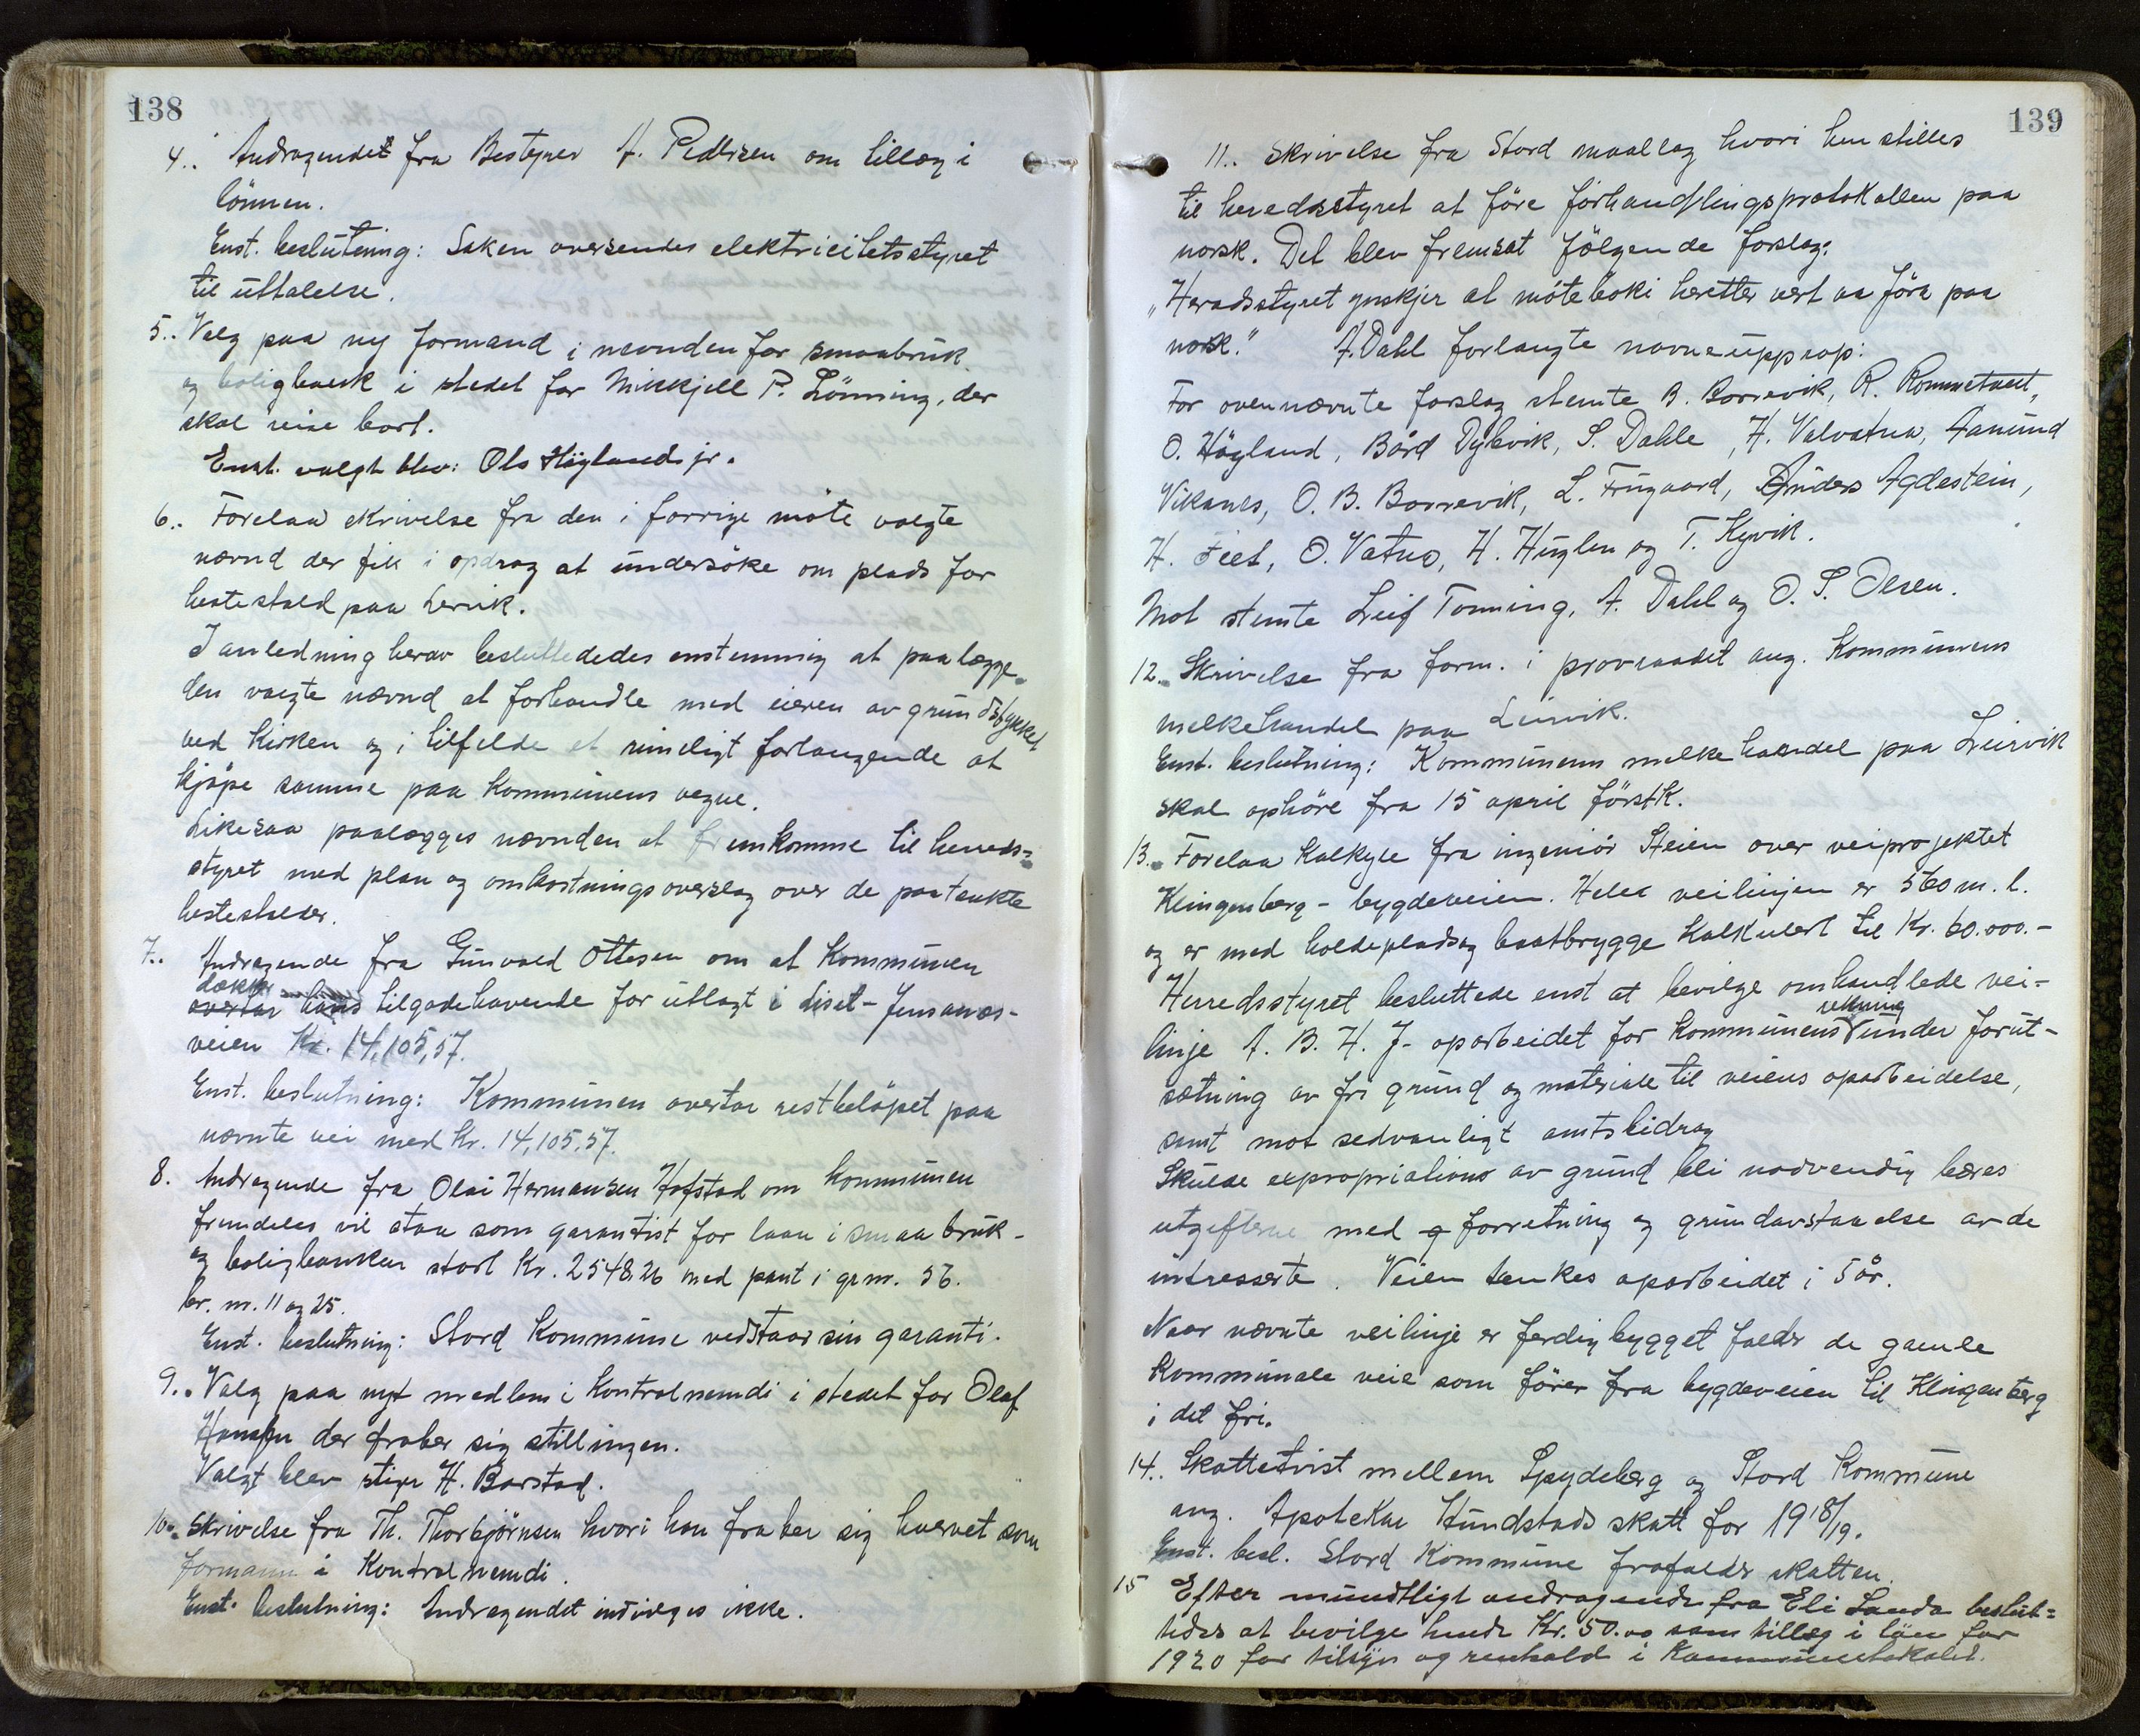 138
4.. Andragendet fra Bestyrer A. Pedersen om tillæg i
lönnen.
Enst. beslutning: Saken oversendes elektricitetsstyret
til uttalelse.
5.. Valg paa ny formand i nævnden for smaabruk
og boligbank i stedet for Mikkjell P. Lönning, der
skal reise bort.
Enst. valgt blev: Ols Höyland jr.
6.. Forelaa skrivelse fra den i forrige möte valgte
nævnd der fik i opdrag at undersöke om plads for
hestestald paa Lervik.
I anledning herav besluttededes enstemmig at paalægge
den valgte nævnd at forhandle med eieren av grundstykket
ved Kirken og i tilfelde et rimeligt forlangende at
kjöpe samme paa Kommunens vegne.
Likesaa paalægges nævnden at fremkomme til herreds-
styret med plan og omkostningsoverslag over de paatænkte
hestestalder.
7.. Andragende fra Gunvald Ottesen om at Kommunen
dækker
overtar hans tilgodehavende for utlagt i Liset - Jensanæs-
veien Kr. 14,105,57.
Enst. beslutning: Kommunen overtar restbelöpet paa
nævnte vei med Kr. 14,105,57.
8. Andragende fra Olai Hermansen Hofstad om kommunen
fremdeles vil staa som garantist for laan i smaabruk-
og boligbanken stort Kr. 2548,26 med pant i gr.nr. 56.
br. nr. 11 og 25.
Enst. beslutning: Stord Kommune vedstaar sin garanti.
9.. Valg paa nyt medlem i Kontrolnemdi i stedet for Olaf
Hansen der fraber sig stillingen.
Valgt blev stiger H. Barstad.
10.. Skrivelse fra Th. Thorbjörnsen hvori han fraber sig hvervet som
formann i Kontrolnemdi.
Enst. beslutning: Andragendet indvilges ikke.
139
11.. Skrivelse fra Stord maallag hvori henstilles
til heredsstyret at före forhandlingsprotokollen paa
norsk. Det blev fremsat fölgende forslag:
"Heradsstyret ynskjer at möteboki heretter vert aa föra paa
norsk." A. Dahl forlangte navneupprop:
For ovennævnte forslag stemte B. Borrevik, R. Rommetveit,
O. Högland, Bård Dybvik, S. Dahle, H. Valvatna, Aamund
Vikanes, O. B. Borrevik, L. Frugaard, Anders Agdestein,
H. Feet, O. Vatna, H. Huglen og T. Kyvik.
Mot stemte Leif Tonning, A. Dahl og O. S. Olsen.
12.. Skrivelse fra form. i provraadet ang. Kommunens
melkehandel paa Leirvik.
Enst. beslutning: Kommunens melkehandel paa Leirvik
skal ophöre fra 15 april förstk.
13.. Forelaa Kalkyle fra ingeniör Steien over veiprojektet
Klingenberg - bygdeveien. Hele veilinjen er 560 m. l.
og er med holdeplads og baatbrygge Kalkulert til Kr. 60.000.-
Herredsstyret besluttede enst at bevilge omhandlede vei-
rekning
linje A. B. H. J. oparbeidet for kommunens under forut-
sætning av fri grund og materiale til veiens oparbeidelse,
samt mot sedvanligt amtsbidrag
Skulde expropriations av grund bli nødvendig bæres
utgifterne med g forretning og grundavstaaelse av de
intresserte. Veien tænkes oparbeidet i 5 år.
Naar nævnte veilinje er ferdig bygget falder de gamle
kommunale veie som förer fra bygdeveien til Klingenberg
i det fri.
14.. Skattetvist mellem Spydeberg og Stord Kommune
ang. Apoteker Hundstads skatt for 1918/19.
Enst. besl. Stord Kommune frafalder skatten.
15 Efter mundtligt andragende fra Eli Sanda beslut-
tedes at bevilge hende Kr. 50.00 som tillæg i lön for
1920 for tilsyn og renhold i Kommunelokalet.